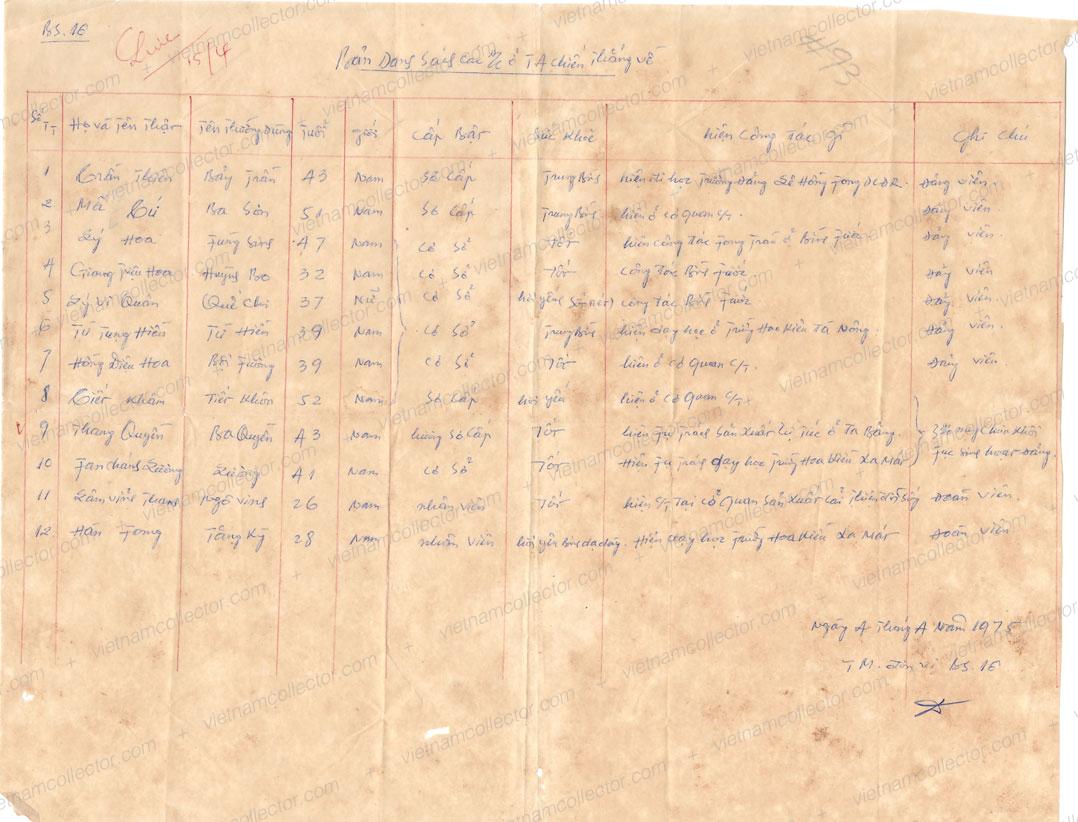 BS.16
Lưu 15/4
#193
Bản Danh Sách các A/C ở TA chiến thắng về
Số TT Họ và Tên Thật Tên Thường Dùng Tuổi giới Cấp Bậc Sức Khỏe hiện Công Tác gì Ghi chú
1 Trần Thiên Bảy Trần 43 Nam Sơ Cấp Trung Bình hiện đi học Trường Đảng Lê Hồng Fong Đảng viên.
2 Mã Tú Ba Sơn 51 Nam Sơ Cấp Trung Bình hiện ở cơ quan C/T. Đảng viên
3 Lý Hoa Fùng Sinh 47 Nam Cơ Sở Tốt hiện công Tác Fong Trào ở Bình Fước Đảng viên.
4 Giang Triều Hoa Huỳnh Bo 32 Nam Cơ Sở Tốt Công Tác Bình Fước. Đảng viên
5 Lý Vi Quân Quế Chi 37 Nữ Cơ Sở hơi yếu công Tác Bình Fước Đảng viên
6 Từ Tung Hiến Tú Hiến 39 Nam Cơ Sở Trung Bình hiện dạy học ở Trường Hoa Kiều Tà Nông. Đảng viên.
7 Hồng Diệu Hoa 39 Nam Cơ Sở Tốt hiện ở cơ quan C/T. Đảng viên
8 Tiết Khâm Tiết Khôn 52 Nam Sơ Cấp hơi yếu hiện ở cơ Quan C/T.
9 Thang Quyền Ba Quyền 43 Nam hưởng Sơ Cấp Tốt hiện Fụ Trách Sản Xuất Tự Túc ở Ta Bằng. 3 đ/c này chưa khôi
10 Fan chánh Lường Lường 41 Nam Cơ Sở Tốt Hiện Fụ Trách dạy học Trường Hoa Kiều Xa Mát Fục Sinh hoạt Đảng.
11 Lâm Vĩnh Thang Ngô Vinh 26 Nam nhân viên Tốt hiện C/T Tại Cơ Quan Sản Xuất Cải Thiện đời Sống Đoàn viên.
12 Hán Fong Tăng Kỳ 28 Nam nhân viên hơi yếu Bịnh dạ dày. Hiện dạy học Trường Hoa Kiều Xa Mát Đoàn viên
Ngày 4 Tháng 4 Năm 1975
T M. đơn vị BS.16
vietnamcollector.com